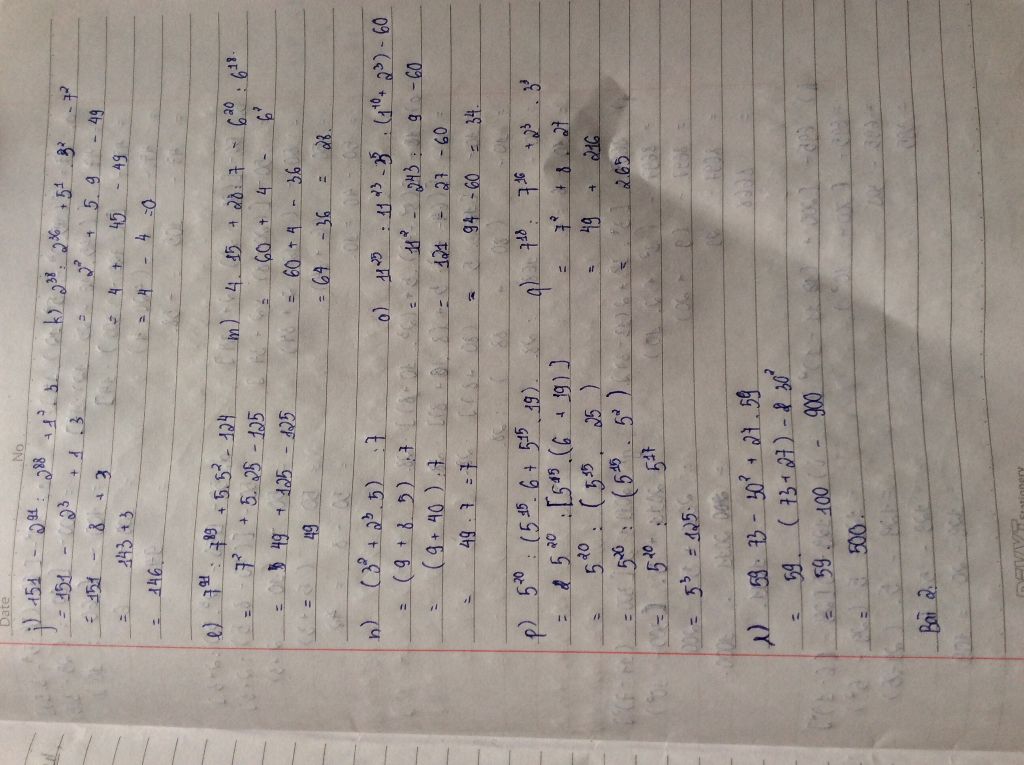 Date
No
j) 151 - 2⁹¹ : 2⁸⁸ + 1² . 3
= 151 - 2³ + 1 . 3
= 151 - 8 + 3
= 143 + 3
= 146
k) 2³⁸ : 2³⁶ + 5¹ . 3² - 7²
= 2² + 5 . 9 - 49
= 4 + 45 - 49
= 4 - 4 = 0
l) 7⁹¹ : 7⁸⁹ + 5 . 5² - 124
= 7² + 5 . 25 - 125
= 49 + 125 - 125
= 49
m) 4 . 15 + 28 : 7 - 6²⁰ : 6¹⁸
= 60 + 4 - 6²
= 60 + 4 - 36
= 64 - 36 = 28
n) (3² + 2³ . 5) : 7
= (9 + 8 . 5) : 7
= (9 + 40) : 7
= 49 : 7 = 7
o) 11²⁵ : 11²³ - 3⁵ : (1¹⁰ + 2³) - 60
= 11² - 243 : 9 - 60
= 121 - 27 - 60
= 94 - 60 = 34
p) 5²⁰ : (5¹⁵ . 6 + 5¹⁵ . 19)
= 5²⁰ : [5¹⁵ . (6 + 19)]
= 5²⁰ : (5¹⁵ . 25)
= 5²⁰ : (5¹⁵ . 5²)
= 5²⁰ : 5¹⁷
= 5³ = 125
q) 7¹⁸ : 7¹⁶ + 2³ . 3³
= 7² + 8 . 27
= 49 + 216
= 265
59 . 73 - 30² + 27 . 59
= 59 . (73 + 27) - 30²
= 59 . 100 - 900
= 500
Bài 2